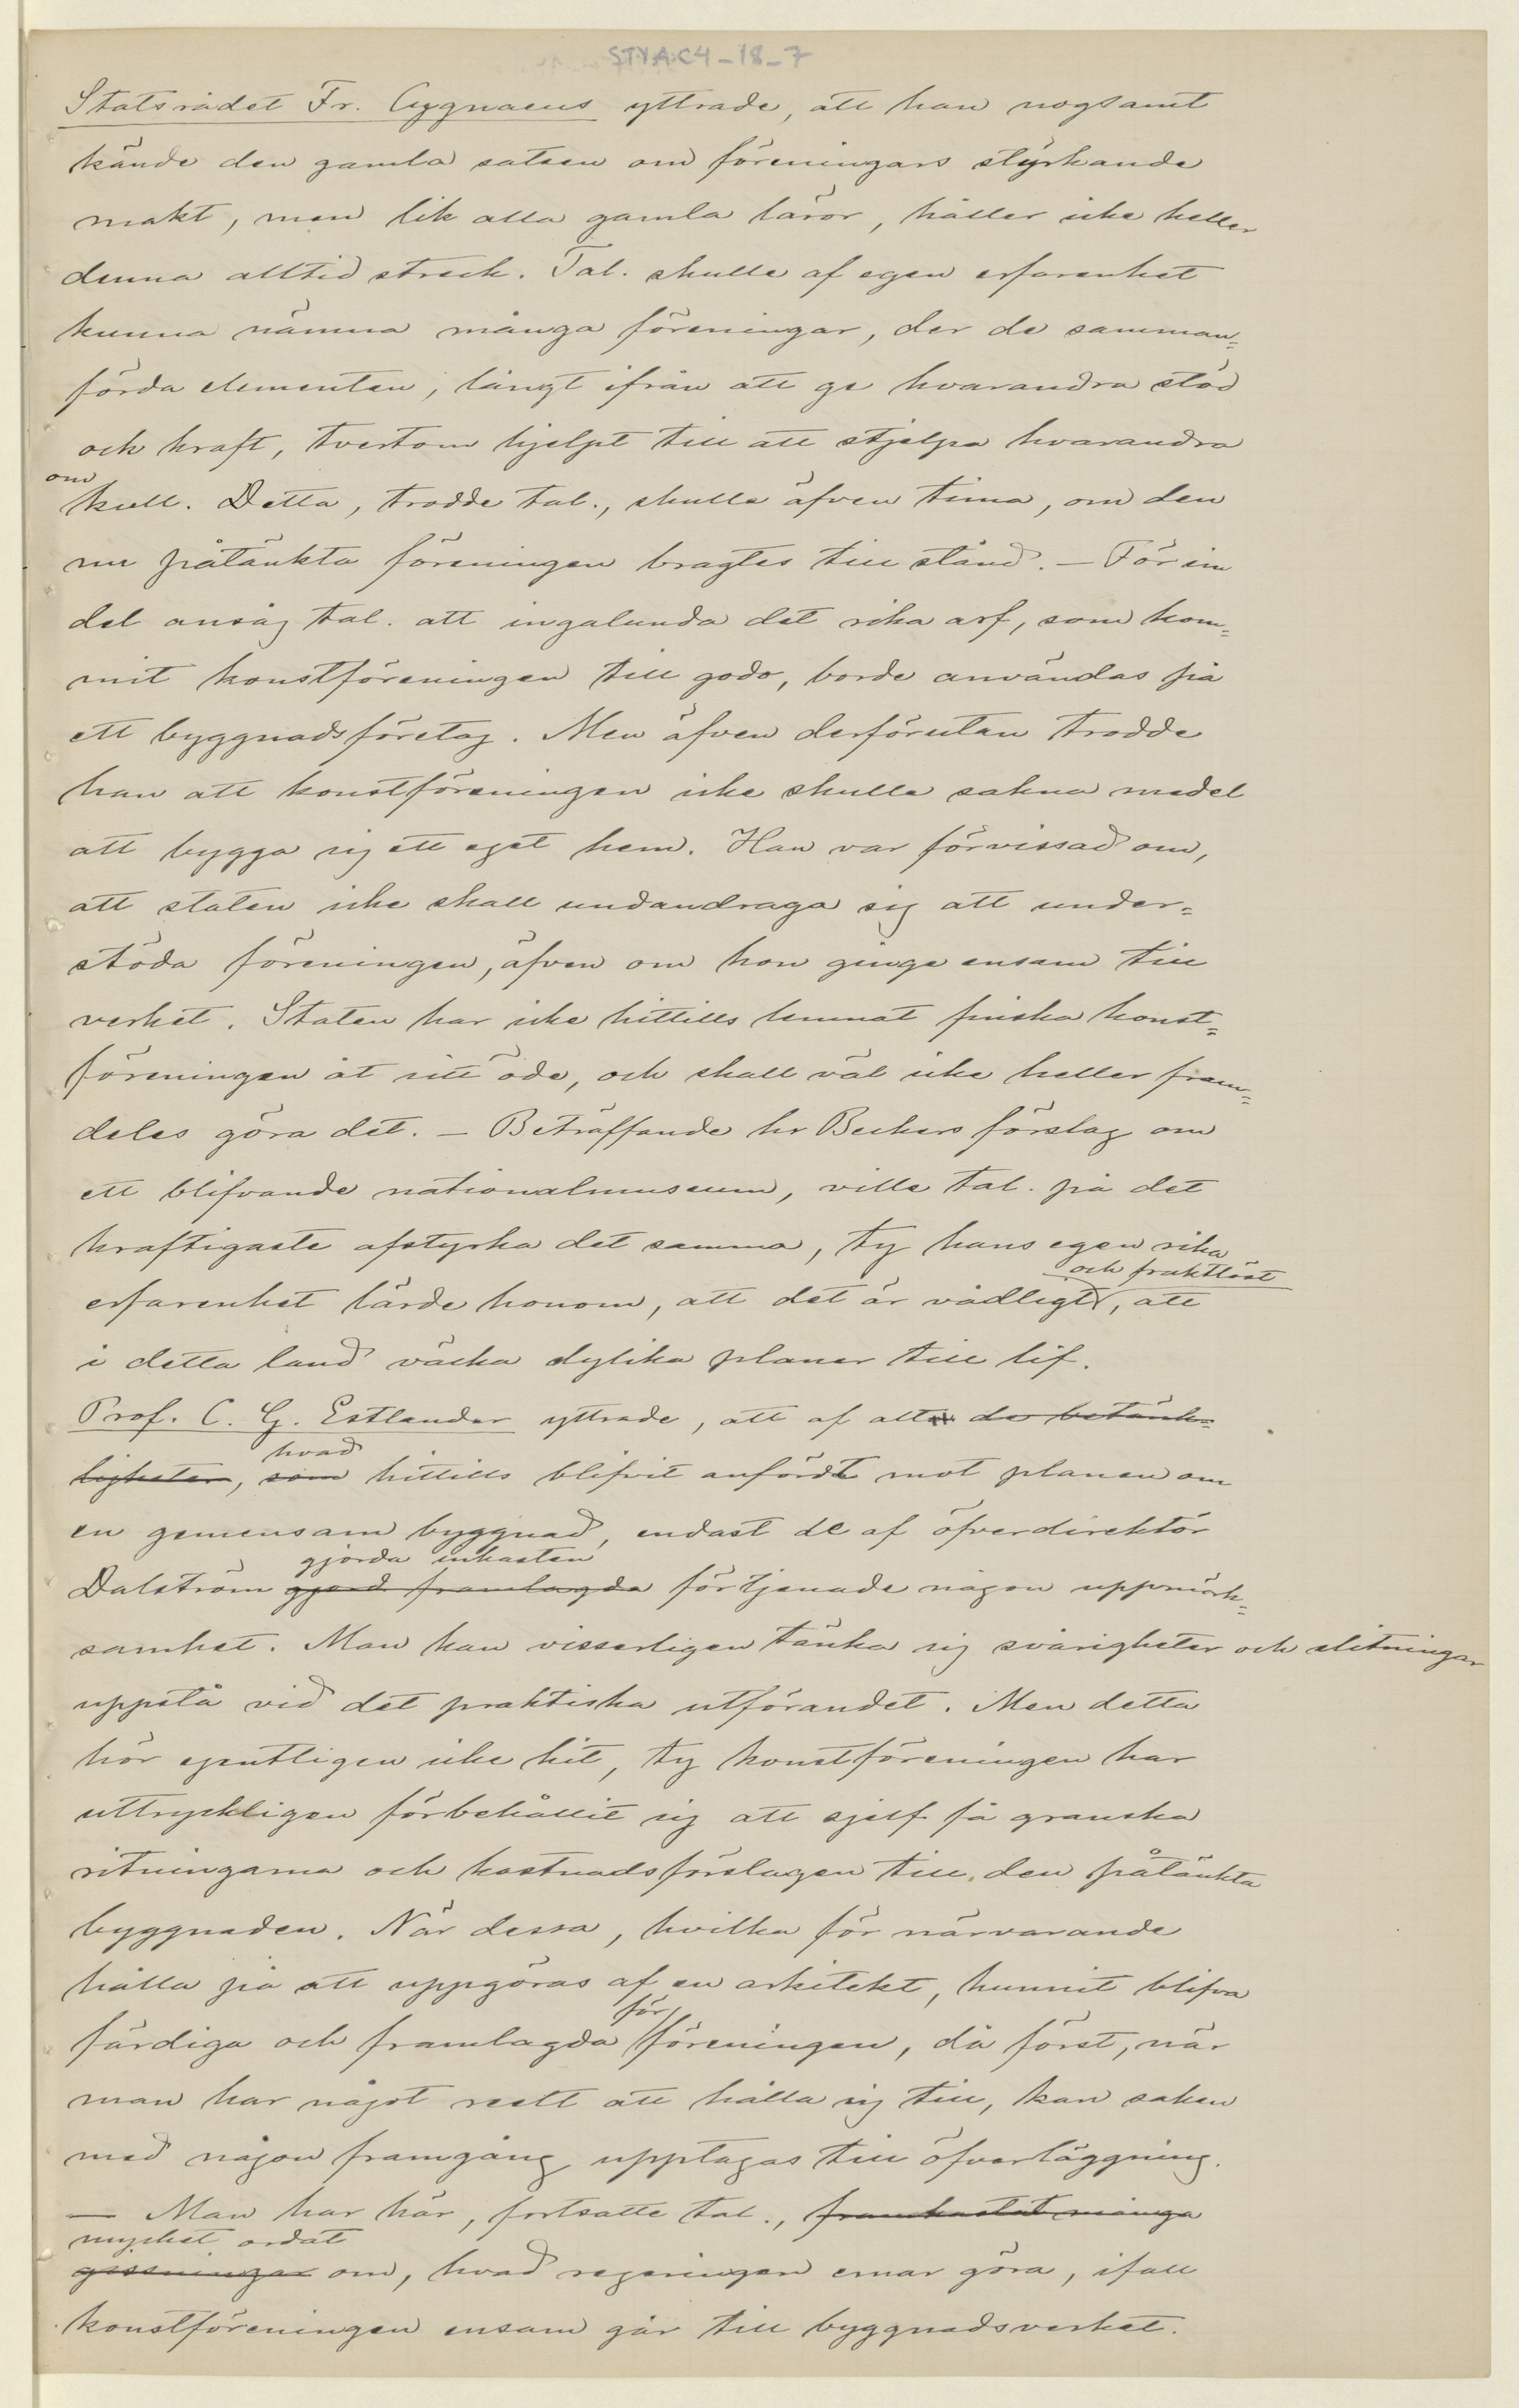 STYA:C4-18-7
Statsrådet Fr. Cygnaeus yttrade, att han nogsamt
kände den gamla satsen om föreningars styrkande
makt, men lik alla gamla läror, håller icke heller
denna alltid streck. Tal. skulle af egen erfarenhet
kunna nämna många föreningar, der de samman=
förda elementen, långt ifrån att ge hvarandra stöd
och kraft, tvertom hjelpt till att stjelpa hvarandra
om
kull. Detta, trodde tal., skulle äfven tima, om den
nu påtänkta föreningen bragtes till stånd. — För sin
del ansåg tal. att ingalunda det rika arf, som kom=
mit konstföreningen till godo, borde användas på
ett byggnadsföretag. Men äfven derförutan trodde
han att konstföreningen icke skulle sakna medel
att bygga sig ett eget hem. Han var förvissad om,
att staten icke skall undandraga sig att under=
stöda föreningen, äfven om hon ginge ensam till
verket. Staten har icke hittills lemnat finska konst=
föreningen åt sitt öde, och skall väl icke heller fram=
deles göra det. — Beträffande hr Beckers förslag om
ett blifvande nationalmuseum, ville tal. på det
kraftigaste afstyrka det samma, ty hans egen rika
och fruktlöst
erfarenhet lärde honom, att det är vådligt, att
i detta land väcka dylika planer till lif.
Prof. C. G. Estlander yttrade, att af allt de betänk=
hvad
ligheter, som hittills blifvit anfördt mot planen om
en gemensam byggnad, endast de af öfverdirektör
gjorda inkasten
Dalström gjord framlagda förtjenade någon uppmärk=
samhet. Man kan visserligen tänka sig svårigheter och slitningar
uppstå vid det praktiska utförandet. Men detta
hör egentligen icke hit, ty konstföreningen har
uttryckligen förbehållit sig att sjelf få granska
ritningarna och kostnadsförslagen till den påtänkta
byggnaden. När dessa, hvilka för närvarande
hålla på att uppgöras af en arkitekt, hunnit blifva
för
färdiga och framlagda föreningen, då först, när
man har något reelt att hålla sig till, kan saken
med någon framgång upptagas till öfverläggning.
— Man har här, fortsatte tal., framkastat många
mycket ordat
gissningar om, hvad regeringen ernar göra, ifall
konstföreningen ensam går till byggnadsverket.